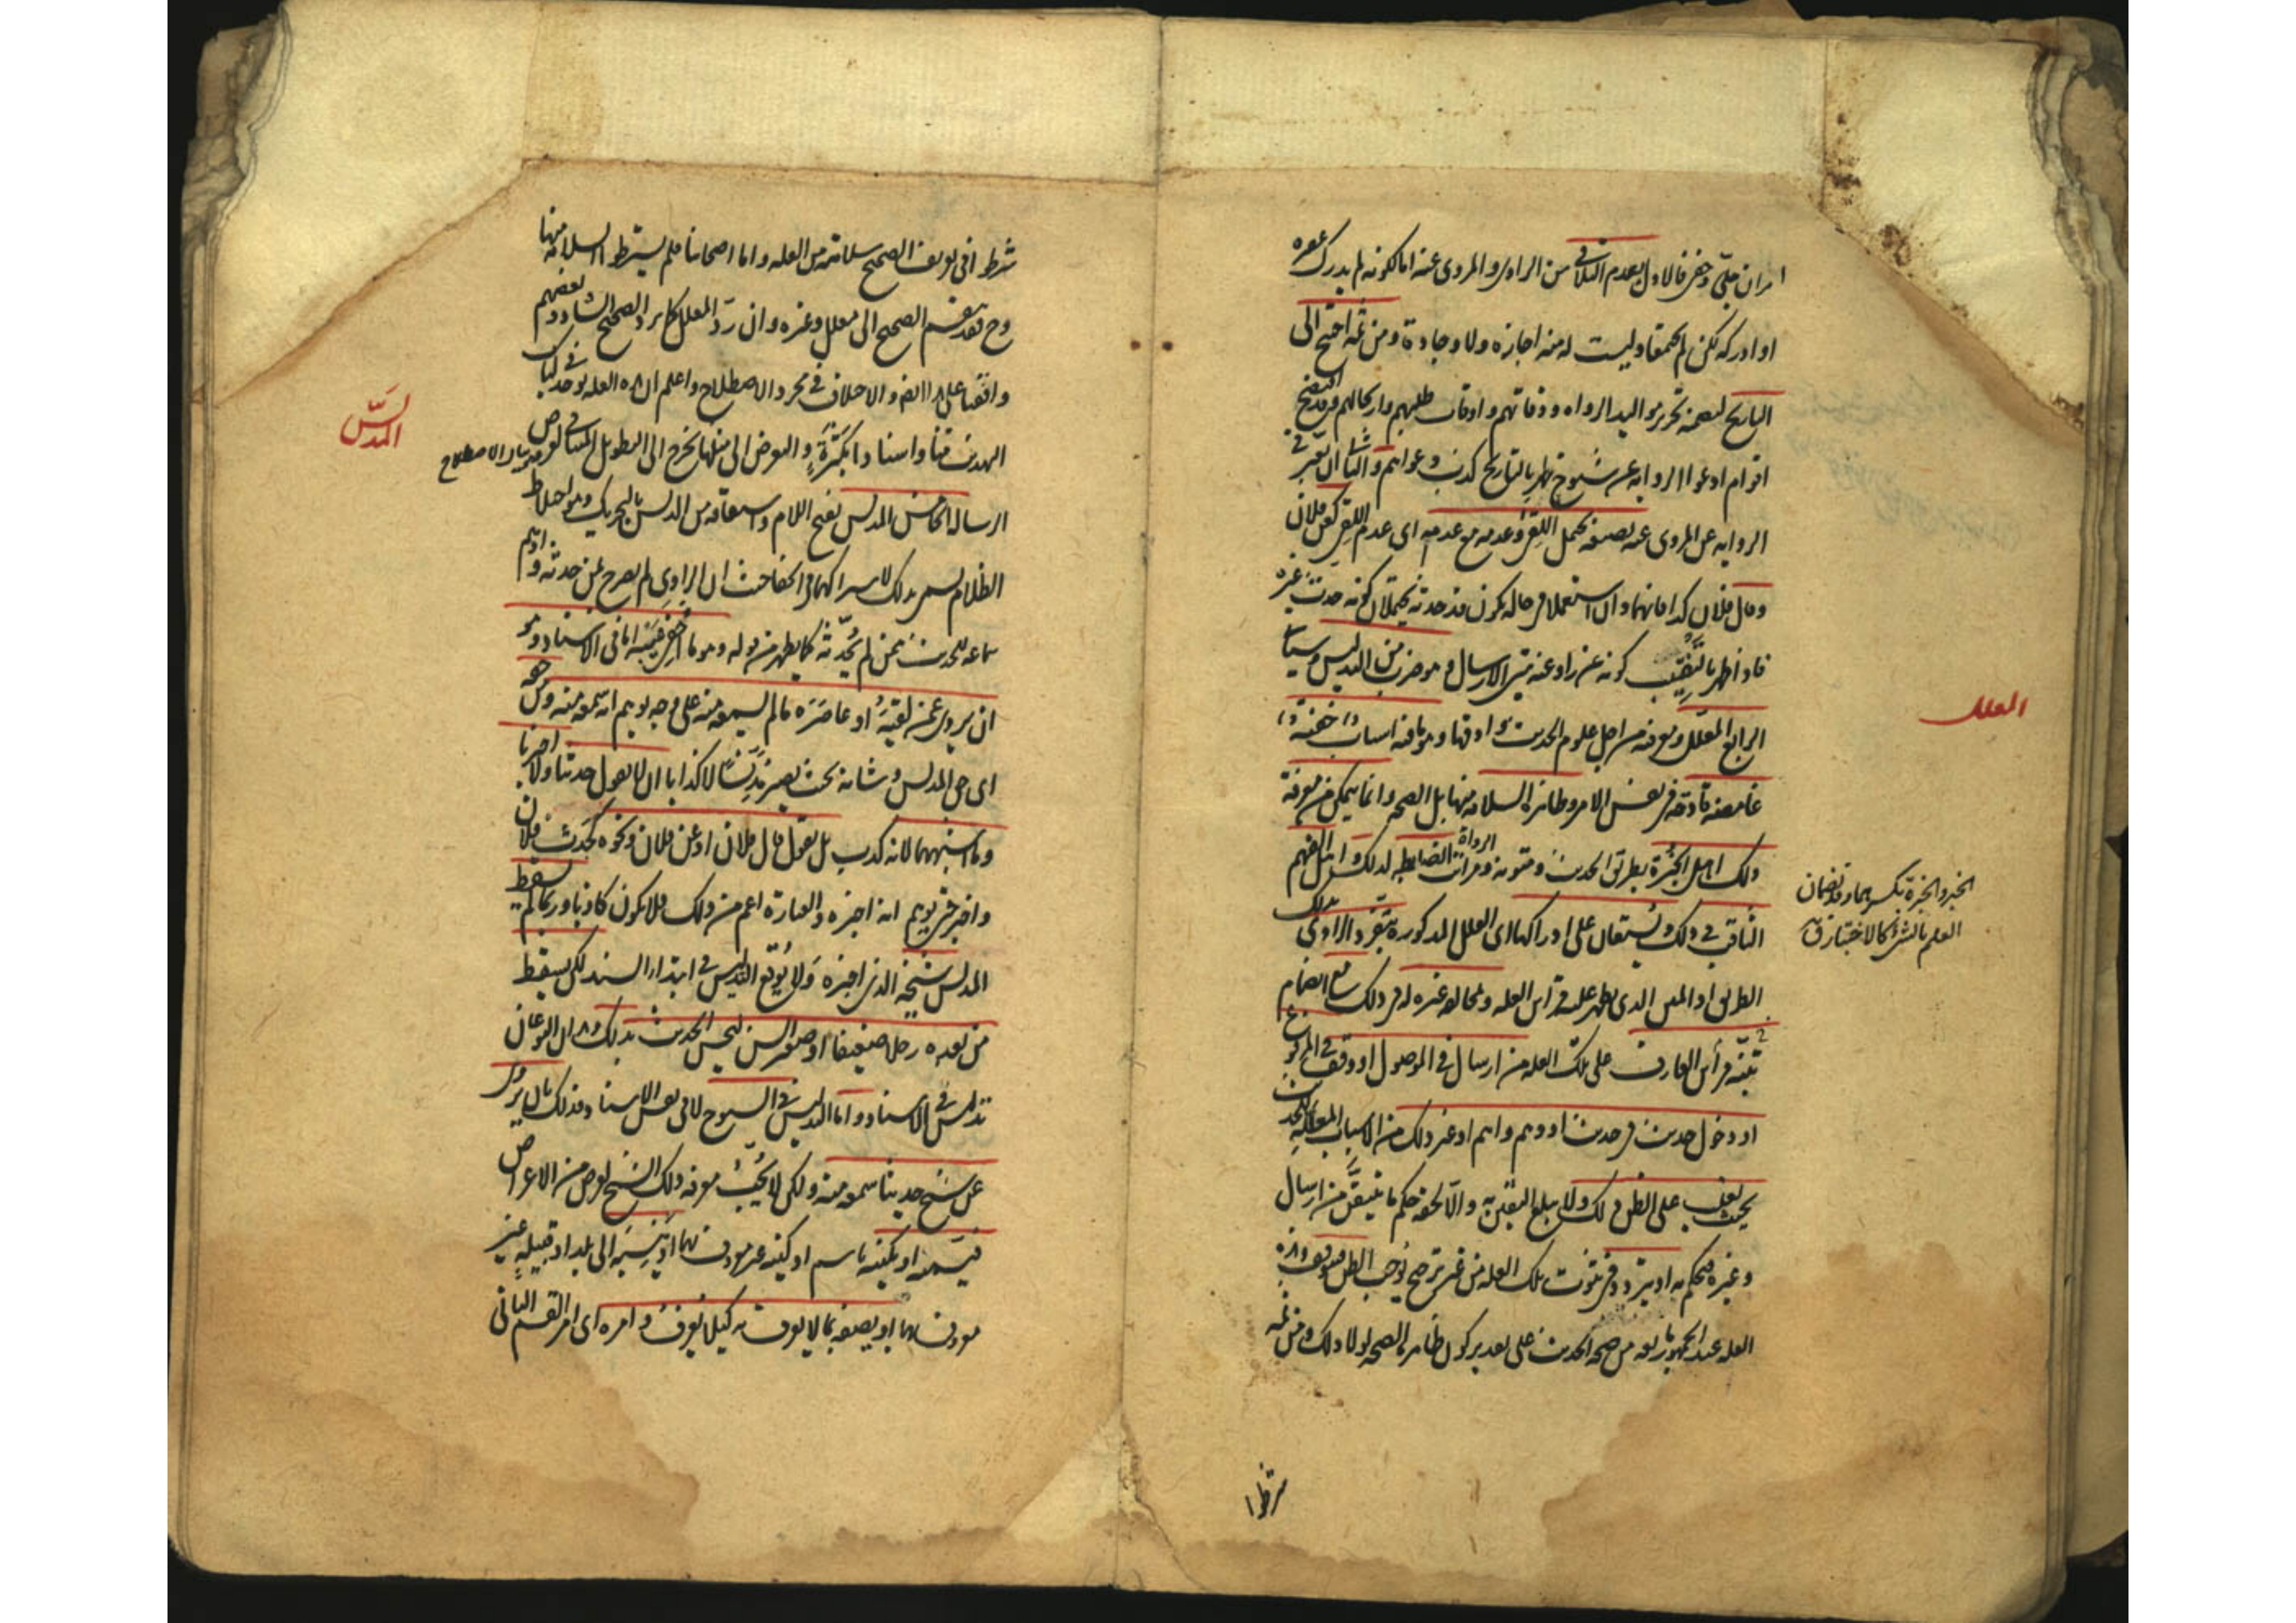 امران جلي وخفي فالاول بعدم التلاقي من الراوي والمروي عنه اما لكونه لم يدرك عصره
او ادركه لكن لم يجتمعا وليست له منه اجازة ولا وجادة ومن ثمه احتج الى
التاريخ لتضمنه تحرير مواليد الرواه ووفاتهم واوقات طلبهم وارتحالهم وقد افتضح
اقوام ادعوا الروايه عن شيوخ ظهر بالتاريخ كذب دعواهم والثاني ان يعبر في
الروايه عن المروي عنه بصيغه تحتمل اللقي وعدمه مع عدمه اى عدم اللقي كعن فلان
وقال فلان كذا فانهما وان استعملا في حاله يكون قد حدثه يحتملان كونه حدث غيره
فاذا ظهر بالتنقيب كونه غير راو عنه تبين الارسال وهو ضرب من التدليس وسياتي
المعلل
الرابع المعلل ومعرفته من اجل علوم الحديث وادقها وهو ما فيه اسباب خفيه
غامضه قادحه في نفس الامر وظاهره السلامه منها بل الصحه وانما يتمكن من معرفة
ذلك اهل الخبرة بطرق الحديث ومتونه ومراتب الرواة الضابطه لذلك واهل الفهم
الخبر والخبرة بكسرهما وقد تضمان
العلم بالشئ كالاختبار ق
الثاقب في ذلك ويستعان على ادراكها اى العلل المذكورة بتفرد الراوي بذلك
الطريق او المتن الذي يظهر عليه قرائن العله وبمخالفه غيره له في ذلك مع انضمام
تنبه قرائن العارف على تلك العله من ارسال في الموصول او وقف في المرفوع
او دخول حديث في حديث او وهم واهم او غير ذلك من الاسباب المعلله للحديث
بحيث يغلب على الظن ذلك ولا يبلغ اليقين به والا لحقه حكم ما تيقن من ارسال
وغيره فيحكم به او يتردد في ثبوت تلك العله من غير ترجيح يوجب الظن فيتوقف وهذه
العله عند الجمهور مانعه من صحه الحديث على تقدير كون ظاهره الصحه لولا ذلك ومن ثمه
شرطوا
شرطوا في تعريف الصحيح سلامته من العله واما اصحابنا فلم يشترطوا السلامه منها
وح فقد ينقسم الصحيح الى معلل وغيره وان رد المعلل كما يرد الصحيح الشاذ وبعضهم
وافقنا على هذا ايضا والاختلاف في مجرد الاصطلاح واعلم ان هذه العله توجد في كتاب
التهذيب متنا واسنادا بكثرة والتعرض الى منها يخرج الى التطويل المنافي لغرض
المدلس
الرساله الخامس المدلس بفتح اللام واشتقاقه من الدلس بالتحريك وهو اختلاط
الظلام سمي بذلك لاشتراكهما في الخفاء حيث ان الراوي لم يصرح بمن حدثه واوهم
سماعه للحديث ممن لم يحدثه كما يظهر من قوله وهو ما اخفي عيبه اما في الاسناد وهو
ان يروي عمن لقيه او عاصره ما لم يسمعه منه على وجه يوهم انه سمعه منه ومن حقه
اى حق المدلس وشانه بحيث يصير مدلسا لا كذابا ان لا يقول حدثنا ولا اخبرنا
وما اشبههما لانه كذب بل يقول قال فلان او عن فلان ونحوه كحدث فلان
واخبر حتى يوهم انه اخبره والعبارة اعم من ذلك فلا يكون كاذبا وربما لم يسقط
المدلس شيخه الذي اخبره ولا يوقع التدليس في ابتداء السند لكن يسقط
من بعده رجلا ضعيفا او صغير السن ليحسن الحديث بذلك وهذان النوعان
تدليس في الاسناد واما التدليس في الشيوخ لا في نفس الاسناد فذلك بان يروي
عن شيخ حديثا سمعه منه ولكن لا يحب معرفه ذلك الشيخ لغرض من الاغراض
فيسميه او يكنيه باسم او كنيه غير معروف بهما او ينسبه الى بلد او قبيله غير
معروف بهما او يصفه بما لا يعرف به كيلا يعرف وامره اى امر القسم الثاني